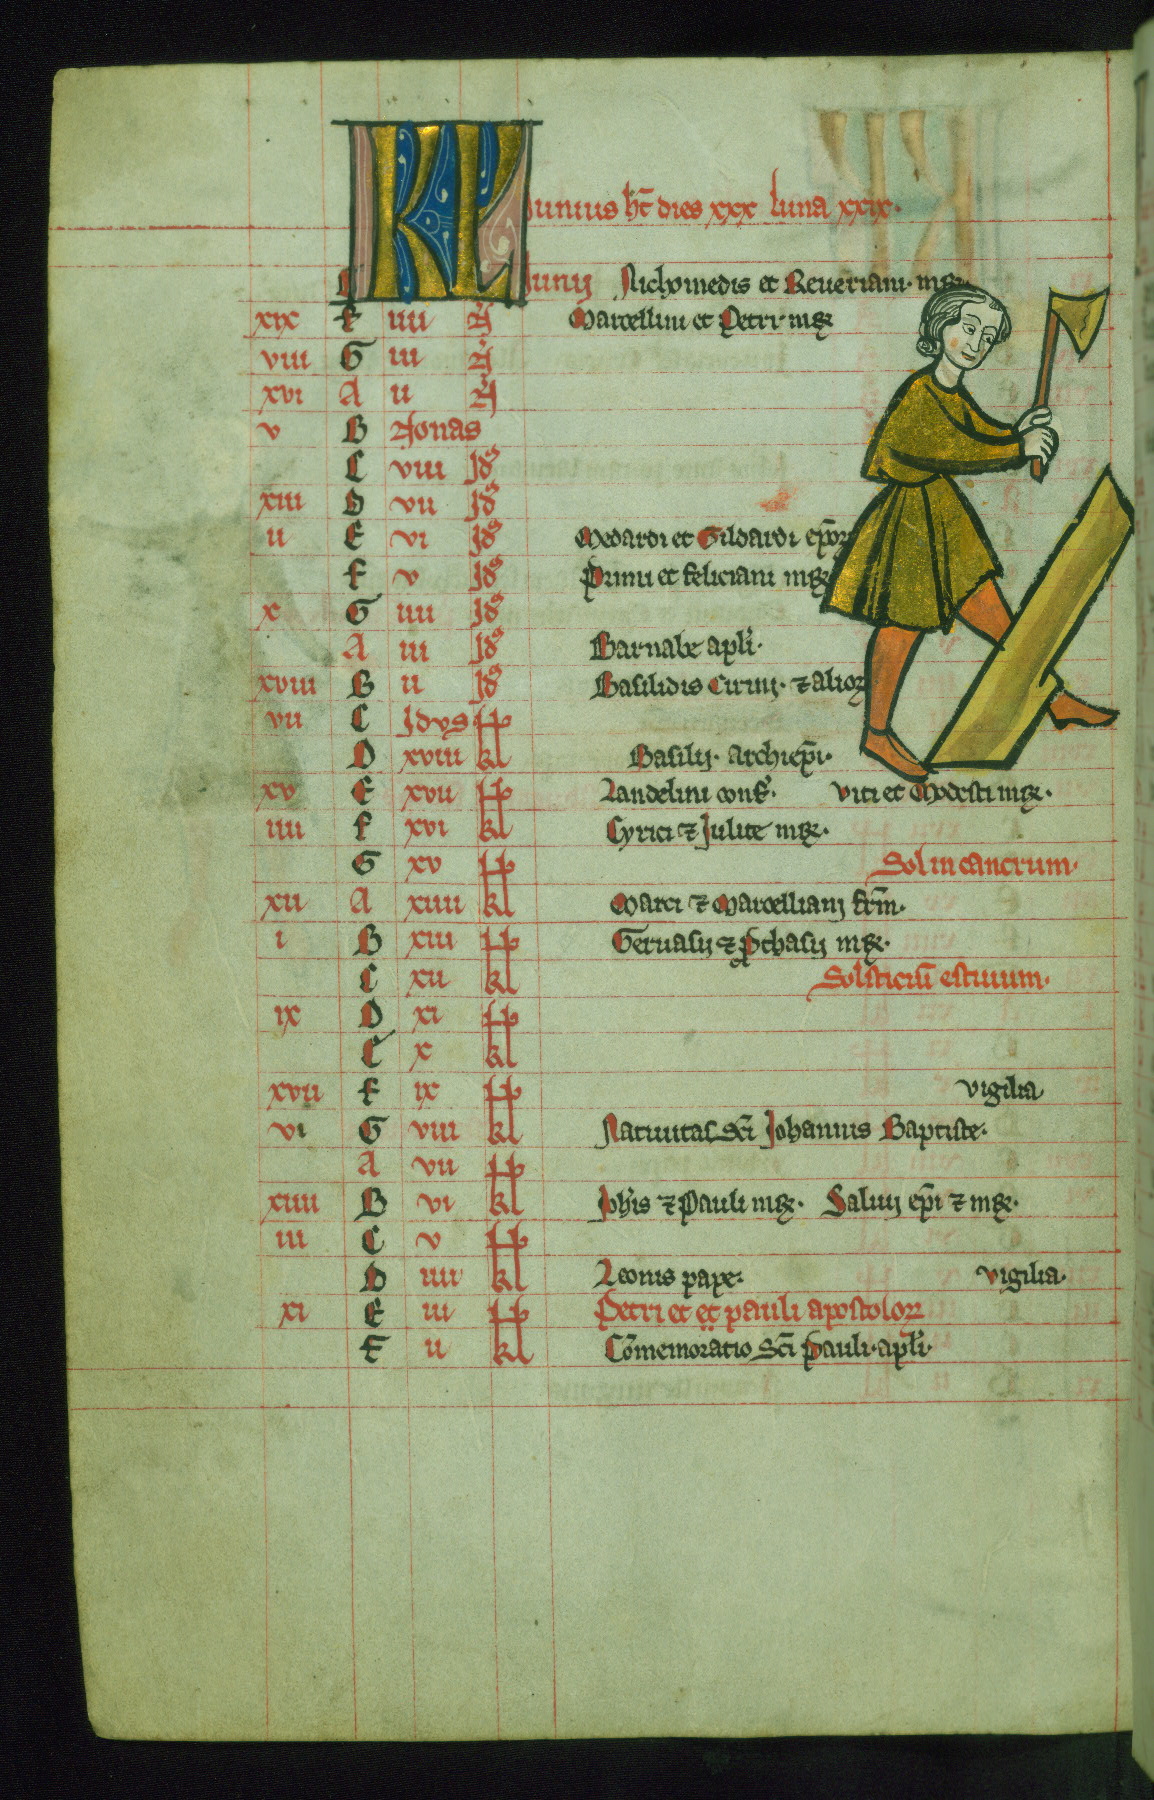 KL Junius ħt dies xxx Luna xxix.
Junij Nichomedis et Reueriani. mr̃
xix F iiii N̄ Marcellini et Petri mr̃
viii G iii N̄
xvi A ii N̄
v B Nonas
C viii Idˢ
xiii D vii Idˢ
ii E vi Idˢ Medardi et Gildardi ep̃oꝝ
F v Idˢ Primi et feliciani mr̃
x G iiii Idˢ
A iii Idˢ Barnabe apl̃i.
xviii B ii Idˢ Basilidis Cirini. ⁊ alioꝝ
vii C Idvs kl
D xviii kl Basilij. archiep̃i.
xv E xvii kl Landelini conf̃. Viti et Modesti mr̃.
iiii F xvi kl Cyrici ⁊ Julite mr̃.
G xv kl Sol in cancrum.
xii A xiiii kl Marci ⁊ Marcelliani fr̃m.
i B xiii kl Geruasij ⁊ ꝓthasij mr̃.
C xii kl Solsticiũ estiuum.
ix D xi kl
E x kl
xvii F ix kl vigilia
vi G viii kl Natiuitas sc̃i Johannis Baptiste.
A vii kl
xiiii B vi kl Joh̃is ⁊ Pauli mr̃. Saluij ep̃i ⁊ mr̃.
iii C v kl
D iiii kl Leonis pape. vigilia.
xi E iii kl Petri et et pauli apostoloꝝ
F ii kl Cõmemoratio Sc̃i Pauli. apl̃i.